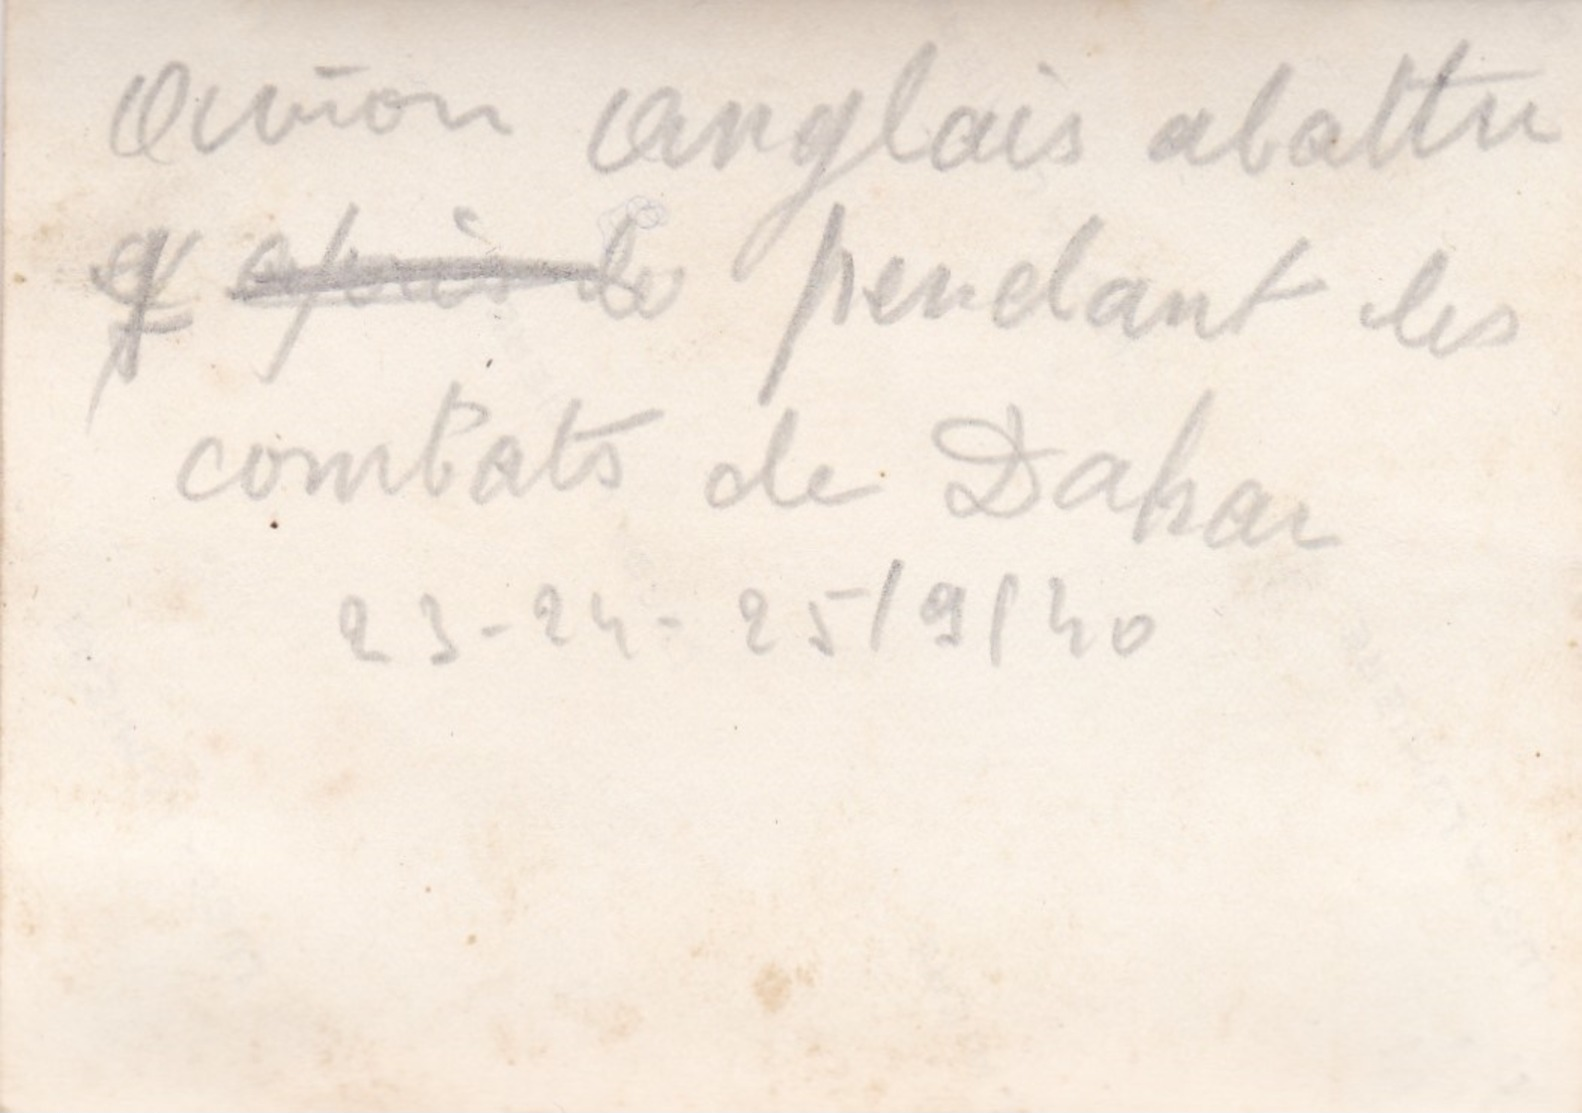 Avion anglais abattu
après les pendant les
combats de Dakar
23-24-25/9/40